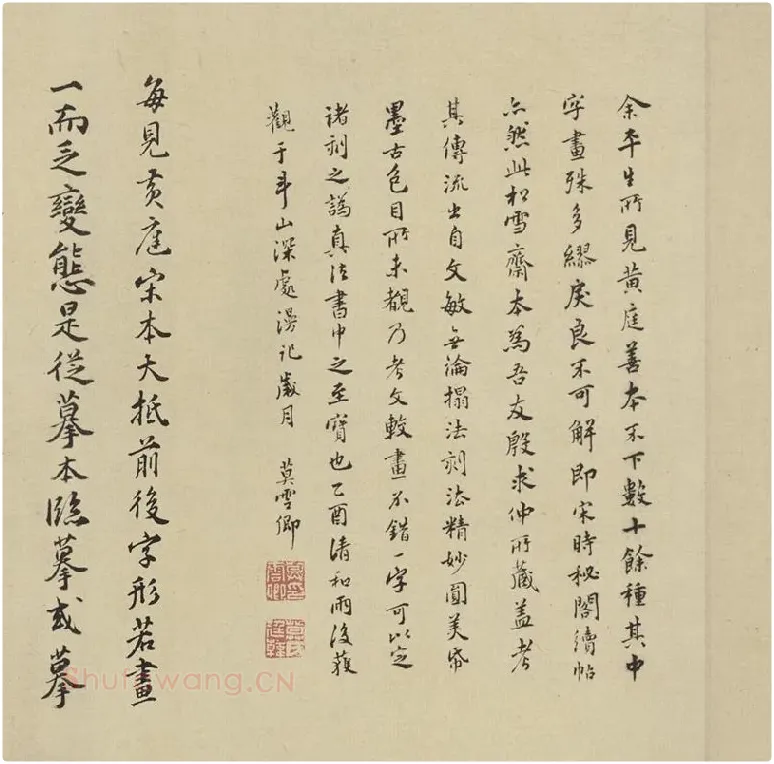 余平生所見黃庭善本不下數十餘種其中
字畫殊多繆戾良不可解即宋時秘閣續帖
亦然此松雪齋本為吾友殷求仲所藏蓋考
其傳流出自文敏無論搨法刻法精妙圓美紙
墨古色目所未覩乃考文較畫不錯一字可以定
褚刻之譌真法書中之至寶也乙酉清和雨後獲
觀于斗山深處漫記歲月 莫雲卿
每見黃庭宋本大抵前後字形若畫
一而乏變態是從摹本臨摹或摹
Shufawang.CN